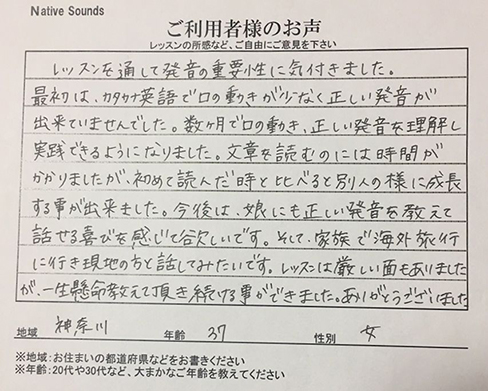 Native Sounds
ご利用者様のお声
レッスンの所感など、ご自由にご意見を下さい
レッスンを通して発音の重要性に気付きました。
最初は、カタカナ英語で口の動きが少なく正しい発音が
出来ていませんでした。数ヶ月で口の動き、正しい発音を理解し
実践できるようになりました。文章を読むのには時間が
かかりましたが、初めて読んだ時と比べると別人の様に成長
する事が出来ました。今後は、娘にも正しい発音を教えて
話せる喜びを感じて欲しいです。そして、家族で海外旅行
に行き現地の方と話してみたいです。レッスンは厳しい面もありました
が、一生懸命教えて頂き続ける事ができました。ありがとうございました
地域 神奈川 年齢 37 性別 女
※地域：お住まいの都道府県などをお書きください
※年齢：20代や30代など、大まかなご年齢を教えてください